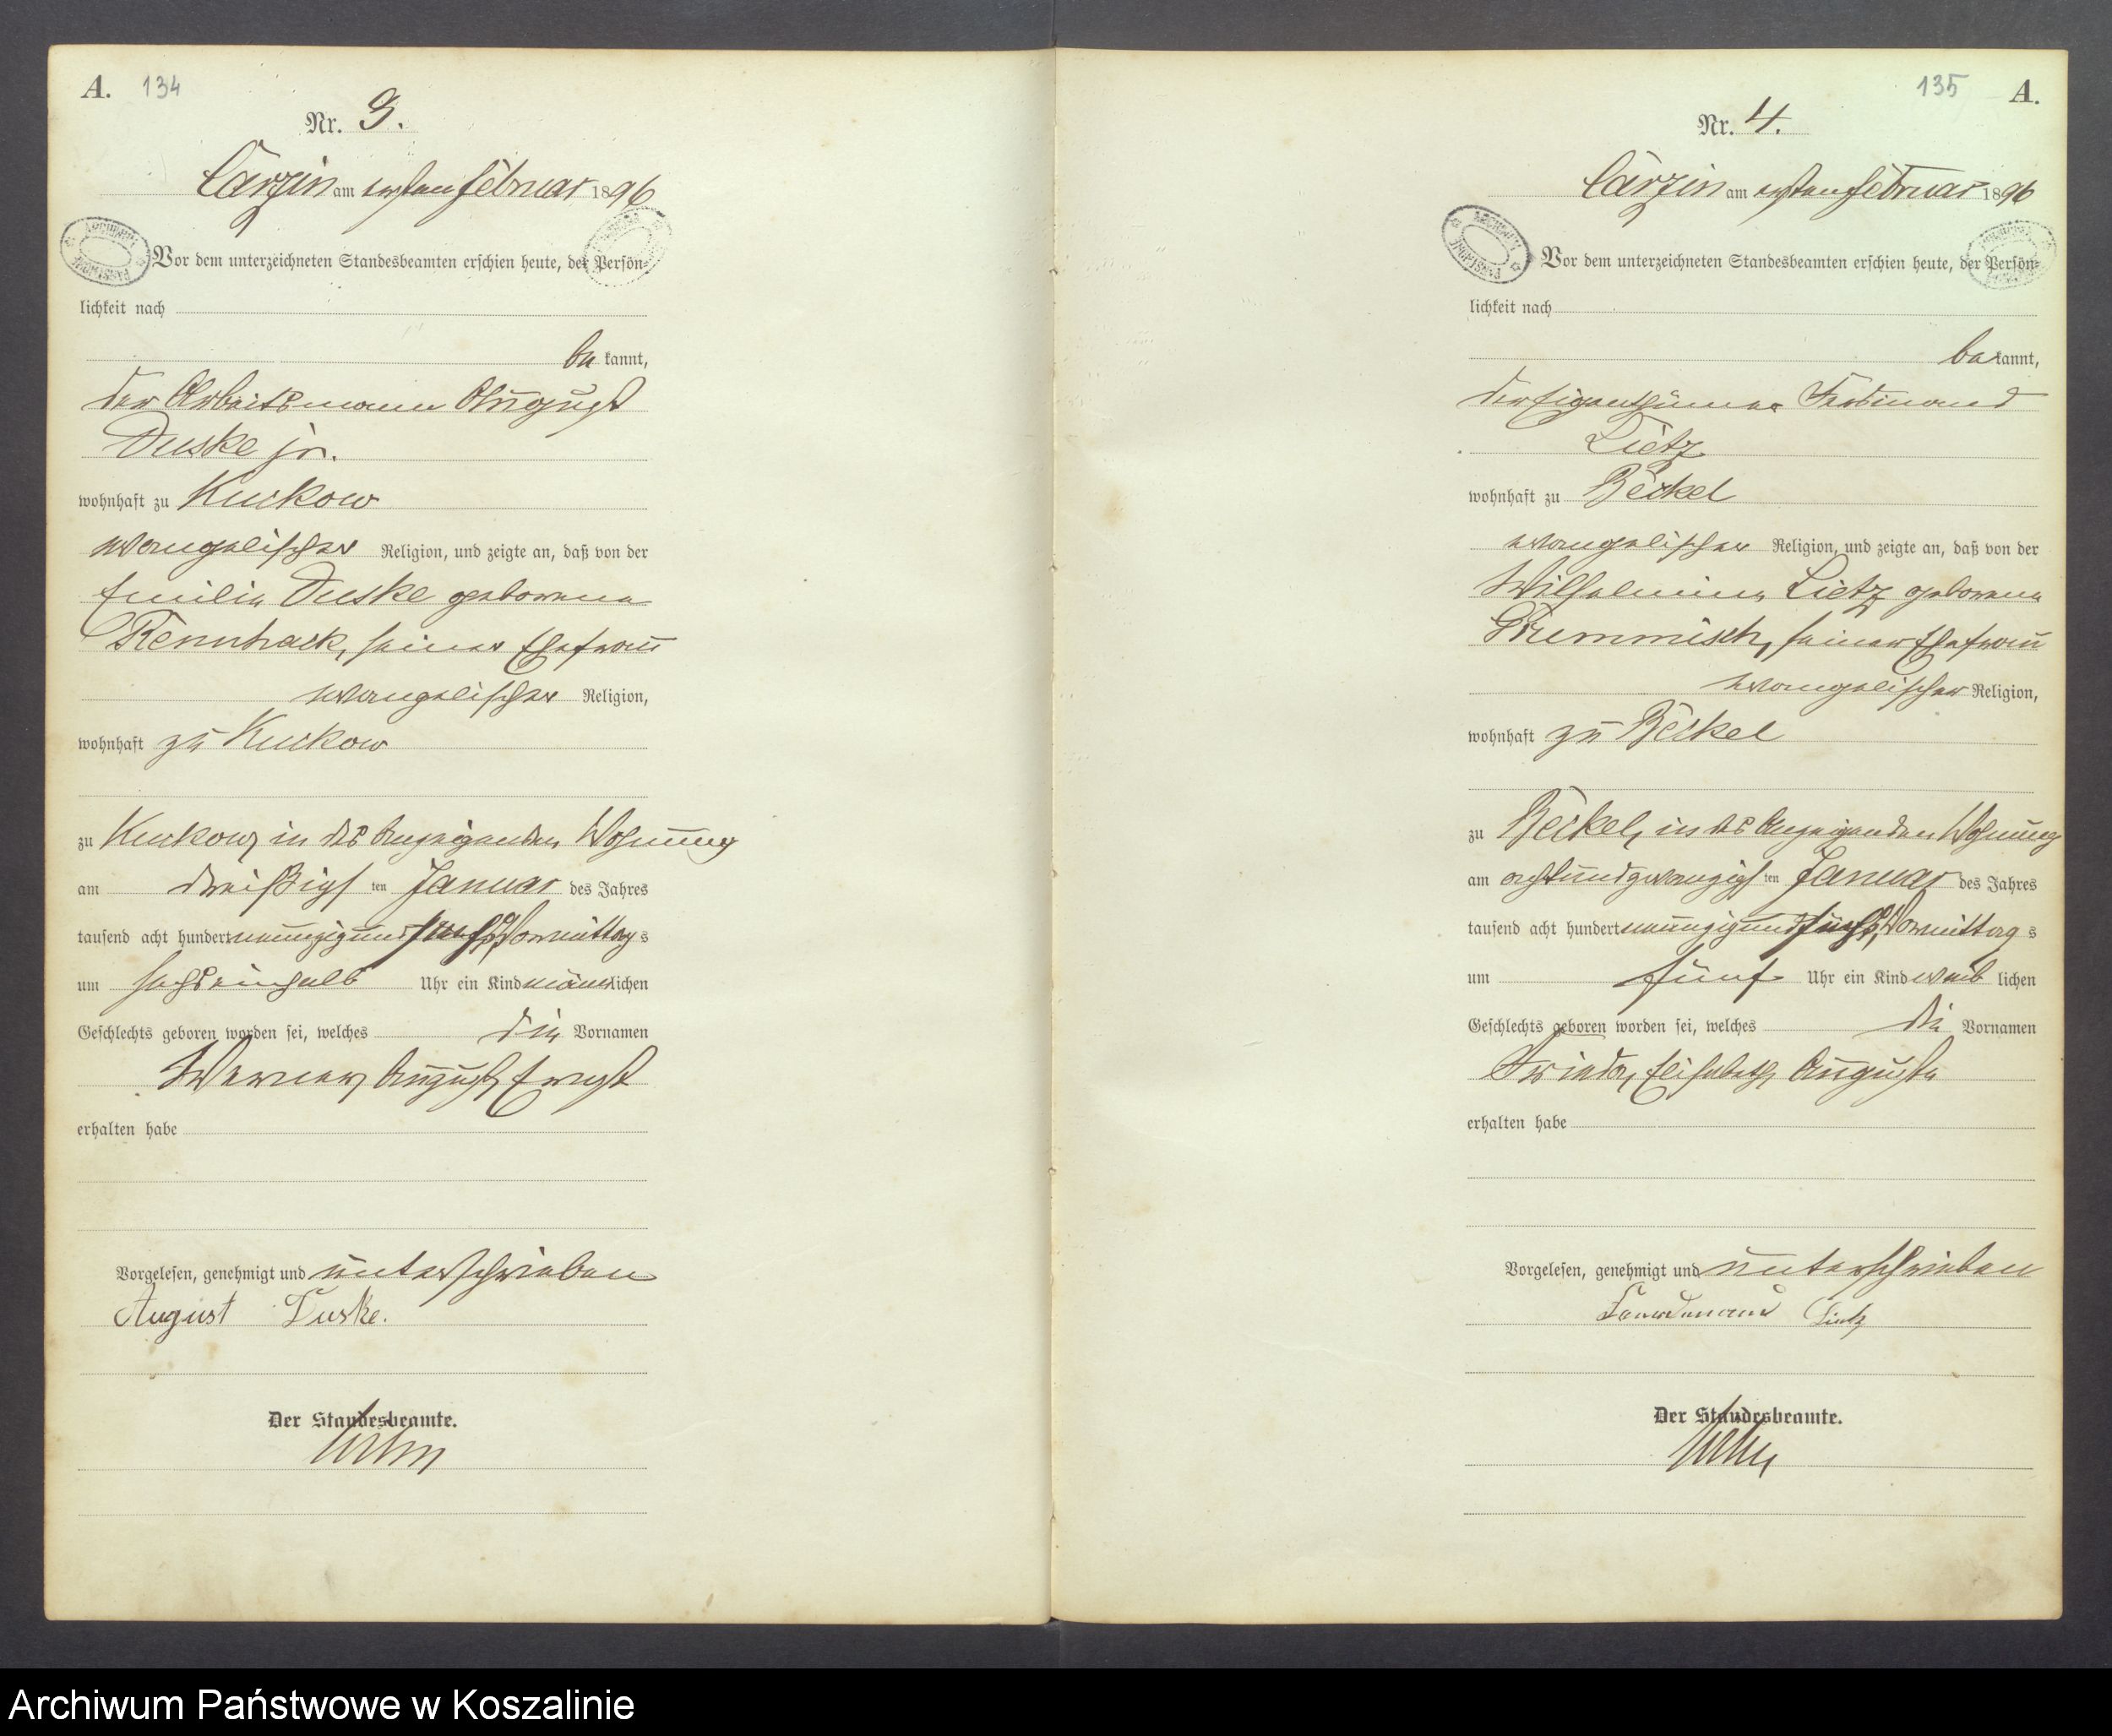 A. 134
Nr. 3.
Carzin am ersten Februar 1896
Vor dem unterzeichneten Standesbeamten erschien heute, der Persön-
lichkeit nach
be kannt,
der Arbeitsmann August
Duske jr.
wohnhaft zu Kuckow
evangelischer Religion, und zeigte an, daß von der
Emilie Duske geborene
Rennhack, seiner Ehefrau
evangelischer Religion,
wohnhaft zu Kuckow
zu Kuckow, in des Anzeigenden Wohnung
am dreißigsten Januar des Jahres
tausend acht hundert neunzig und sechs, Vormittags
um sechseinhalb Uhr ein Kind männlichen
Geschlechts geboren worden sei, welches die Vornamen
Werner, August, Ernst
erhalten habe
Vorgelesen, genehmigt und unterschrieben
August Duske.
Der Standesbeamte.
135 A.
Nr. 4.
Carzin am ersten Februar 1896
Vor dem unterzeichneten Standesbeamten erschien heute, der Persön-
lichkeit nach
be kannt,
der Eigenthümer Ferdinand
Lietz
wohnhaft zu Beckel
evangelischer Religion, und zeigte an, daß von der
Wilhelmine Lietz geborene
seiner Ehefrau
evangelischer Religion,
wohnhaft zu Beckel
zu Beckel, in des Anzeigenden Wohnung
am achtundzwanzigsten Januar des Jahres
tausend acht hundert neunzig und sechs, Vormittags
um fünf Uhr ein Kind weiblichen
Geschlechts geboren worden sei, welches die Vornamen
Frieda, Elisabeth, Auguste
erhalten habe
Vorgelesen, genehmigt und unterschrieben
Lietz
Der Standesbeamte.
Archiwum Państwowe w Koszalinie